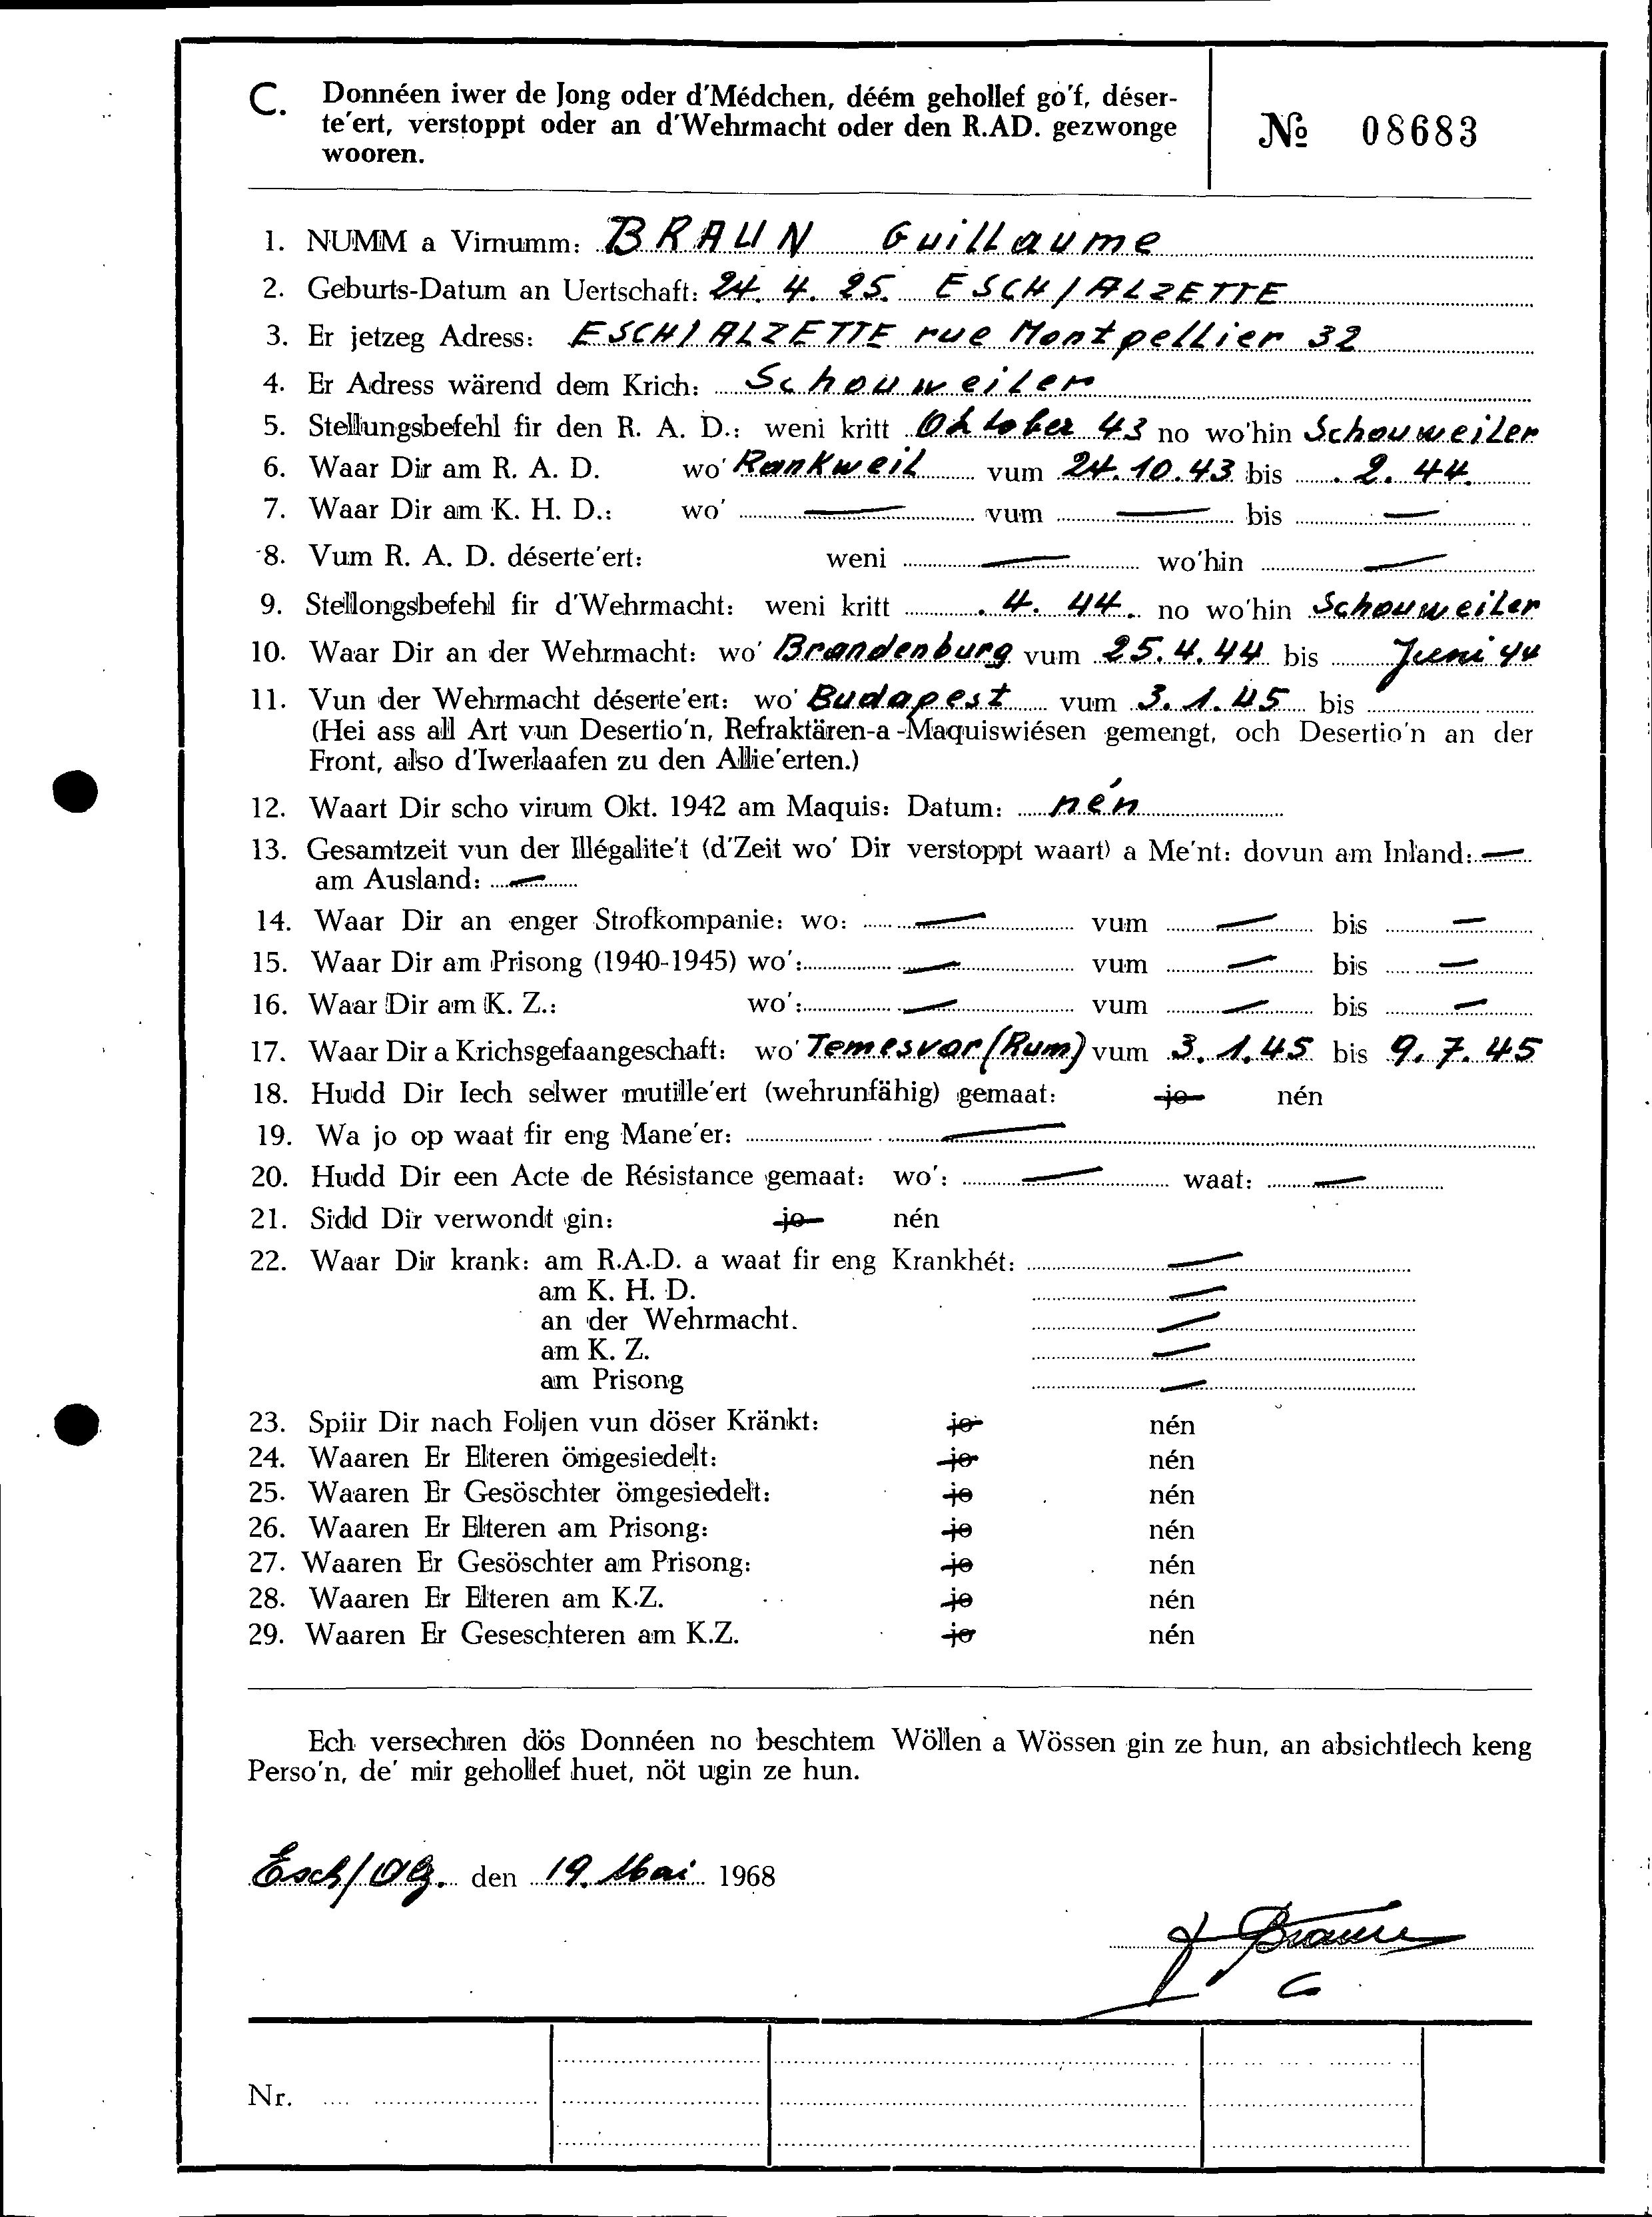 C. Donnéen iwer de Jong oder d'Médchen, déém gehollef go'f, déser-
te'ert, verstoppt oder an d'Wehrmacht oder den R.AD. gezwonge
wooren.
№ 08683
1. NUMM a Virnumm: BRAUN Guillaume
2. Geburts-Datum an Uertschaft: 24. 4. 25. ESCH/ALZETTE
3. Er jetzeg Adress: ESCH/ALZETTE rue Montpellier 32
4. Er Adress wärend dem Krich: Schouweiler
5. Stellungsbefehl fir den R. A. D.: weni kritt Oktober 43 no wo'hin Schouweiler
6. Waar Dir am R. A. D. wo' Rankweil vum 24.10.43 bis . 2. 44.
7. Waar Dir am K. H. D.: wo' — vum — bis —
8. Vum R. A. D. déserte'ert: weni — wo'hin —
9. Stellongsbefehl fir d'Wehrmacht: weni kritt . 4. 44. no wo'hin Schouweiler
10. Waar Dir an der Wehrmacht: wo' Brandenburg vum 25.4.44 bis Juni 44
11. Vun der Wehrmacht déserte'ert: wo' Budapest vum 3.1.45 bis
(Hei ass all Art vun Desertio'n, Refraktären-a-Maquiswiésen gemengt, och Desertio'n an der
Front, also d'Iwerlaafen zu den Allie'erten.)
12. Waart Dir scho virum Okt. 1942 am Maquis: Datum: nén
13. Gesamtzeit vun der Illégalite't (d'Zeit wo' Dir verstoppt waart) a Me'nt: dovun am Inland: —
am Ausland: —
14. Waar Dir an enger Strofkompanie: wo: — vum — bis —
15. Waar Dir am Prisong (1940-1945) wo': — vum — bis —
16. Waar Dir am K. Z.: wo': — vum — bis —
17. Waar Dir a Krichsgefaangeschaft: wo' Temesvar (Rum) vum 3.1.45 bis 9.7.45
18. Hudd Dir Iech selwer mutille'ert (wehrunfähig) gemaat: jo nén
19. Wa jo op waat fir eng Mane'er: —
20. Hudd Dir een Acte de Résistance gemaat: wo': — waat: —
21. Sidd Dir verwondt gin: jo nén
22. Waar Dir krank: am R.A.D. a waat fir eng Krankhét: —
am K. H. D. —
an der Wehrmacht. —
am K. Z. —
am Prisong —
23. Spiir Dir nach Foljen vun döser Kränkt: jo nén
24. Waaren Er Elteren ömgesiedelt: jo nén
25. Waaren Er Gesöschter ömgesiedelt: jo nén
26. Waaren Er Elteren am Prisong: jo nén
27. Waaren Er Gesöschter am Prisong: jo nén
28. Waaren Er Elteren am K.Z. jo nén
29. Waaren Er Geseschteren am K.Z. jo nén
Ech versechren dös Donnéen no beschtem Wöllen a Wössen gin ze hun, an absichtlech keng
Perso'n, de' mir gehollef huet, nöt ugin ze hun.
Esch/Alz. den 19. Mai 1968
Braun
Nr.